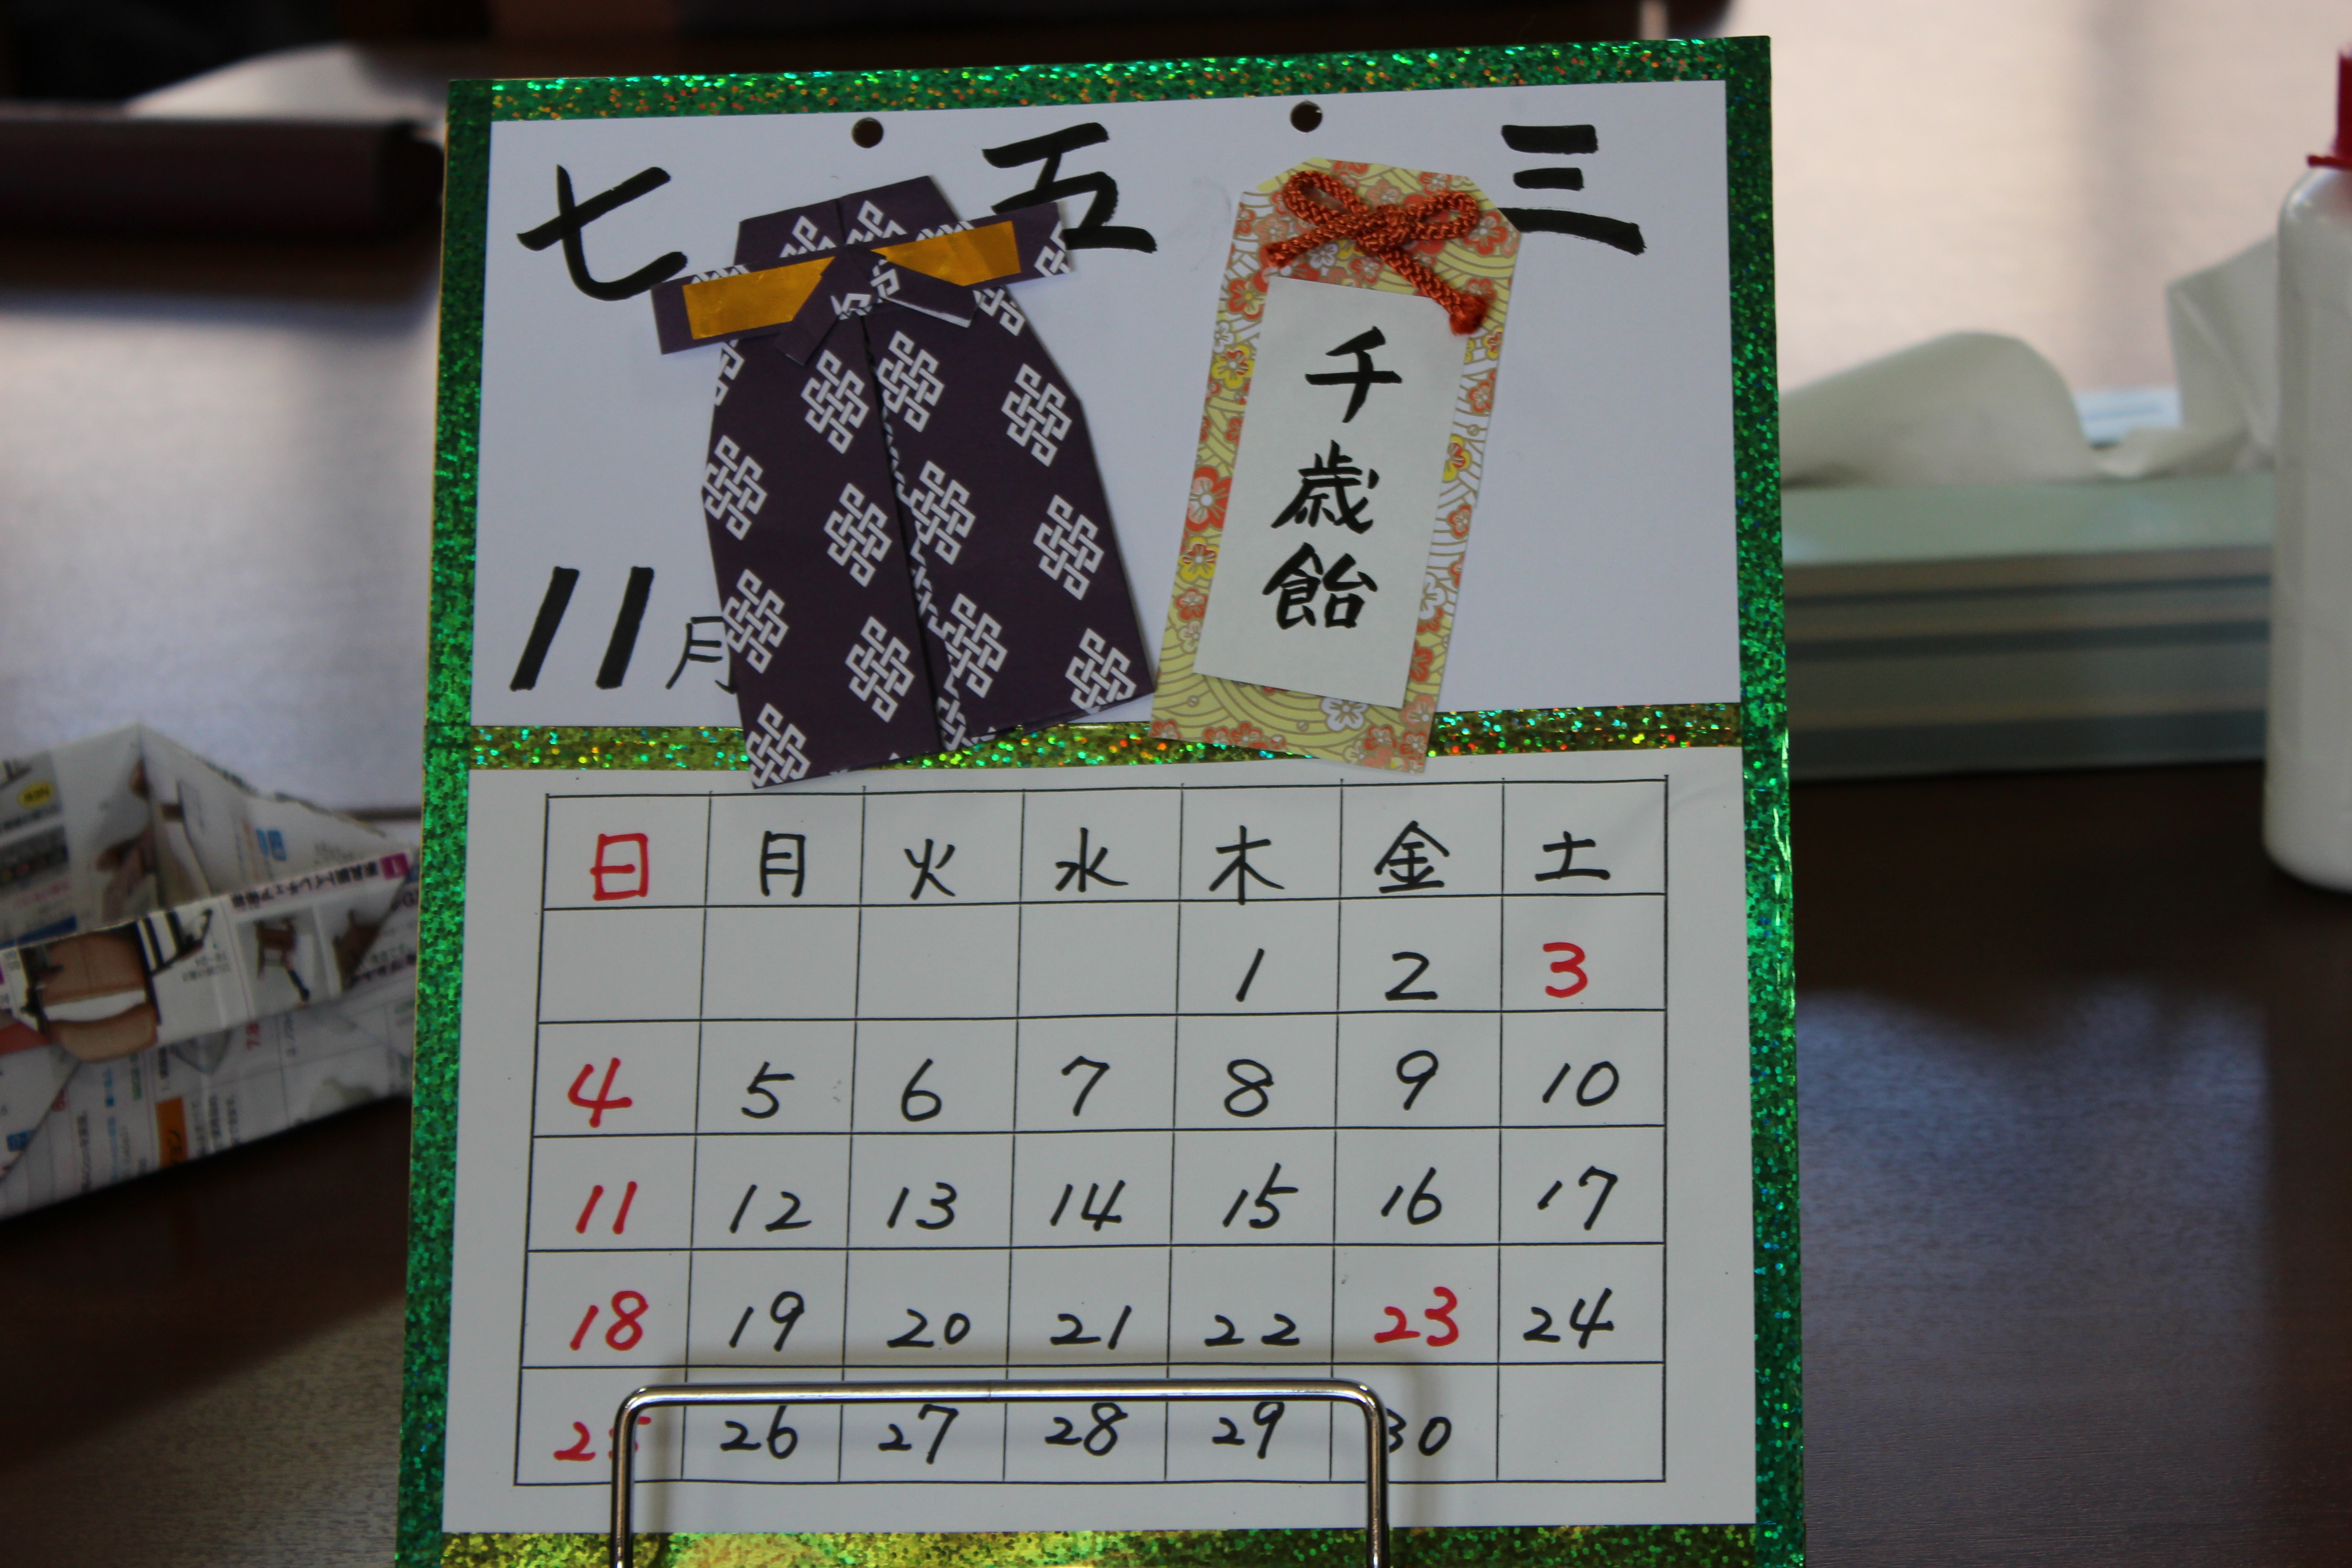 七 五 三
千歳飴
11月
日 月 火 水 木 金 土
1 2 3
4 5 6 7 8 9 10
11 12 13 14 15 16 17
18 19 20 21 22 23 24
25 26 27 28 29 30
NEW